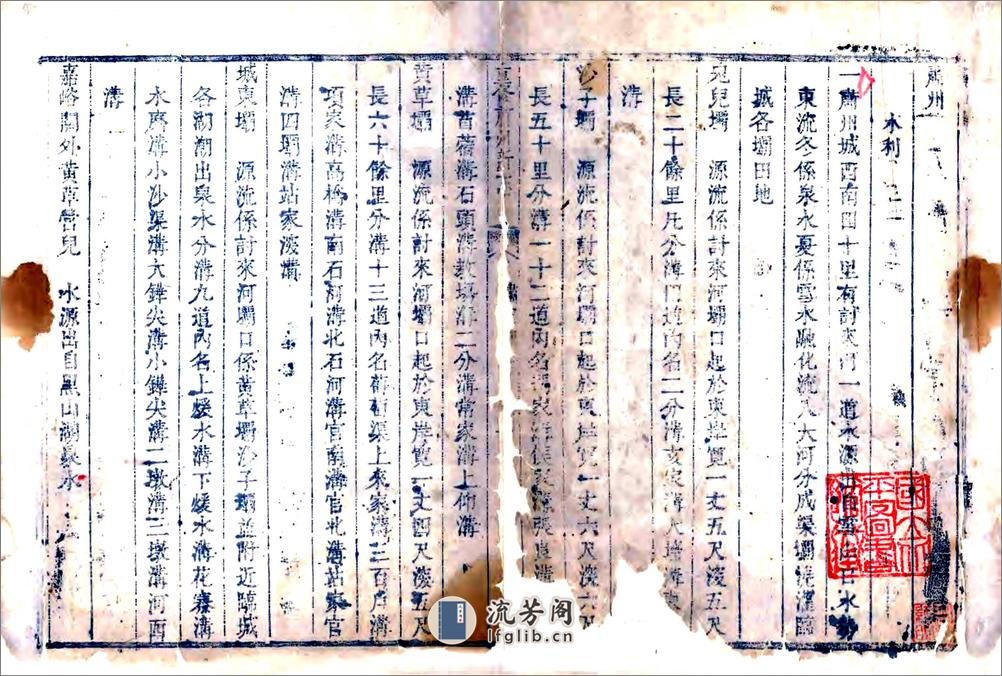 肅州
水利
一肅州城西南四十里有討來河一道水源出自雪山口水勢
東流冬係泉水夏係雪水融化流入大河分成渠壩澆灌臨
城各壩田地
兒兒壩 源流係討來河壩口起於東岸寬一丈五尺深五尺
長二十餘里凡分溝 道內名二分溝 家溝大 溝
溝
沙子壩 源流係討來河壩口起於東岸寬一丈六尺深六尺
長五十里分溝一十二道內名 家 溝張 溝
溝苜蓿溝石頭溝教場溝二分溝常家溝上仰溝
黃草壩 源流係討來河壩口起於東岸寬一丈四尺深五尺
長六十餘里分溝十三道內名葡萄渠上來家溝三百戶溝
項家溝高橋溝南石河溝北石河溝官南溝官北溝站家官
溝四壩溝站家深溝
城東壩 源流係討來河壩口係黃草壩沙子壩並附近臨城
各湖湖出泉水分溝九道內名上煖水溝下煖水溝花寨溝
水磨溝小沙渠溝大鏵尖溝小鏵尖溝二墩溝三墩溝河西
溝
嘉峪關外黃草營兒 水源出自黑山湖泉水
流芳阁
lfglib.cn